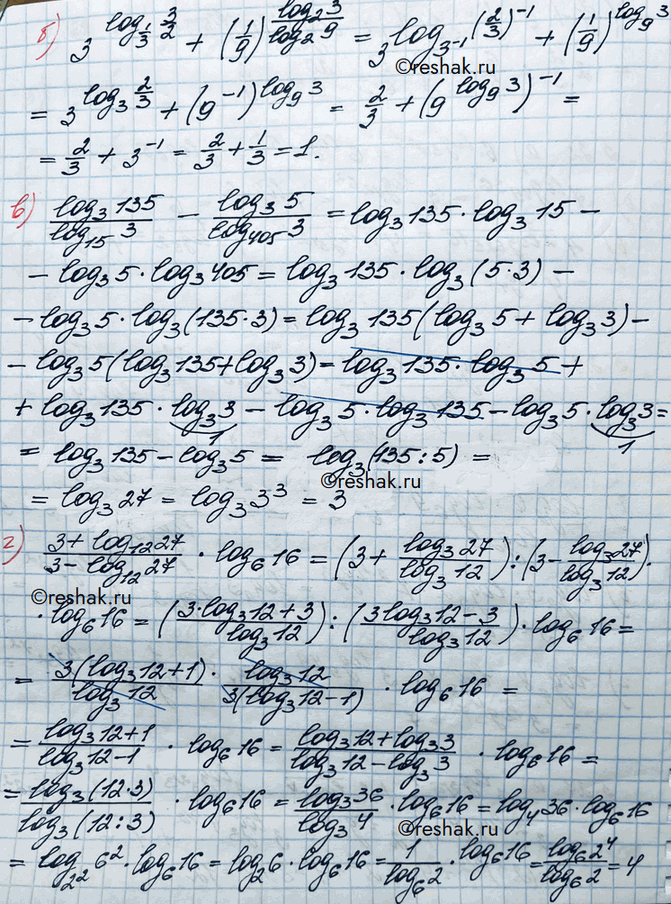 б) 3^(log_(1/3) 3/2) + (1/9)^(log_2 3 / log_2 9) = 3^(log_(3^-1) (2/3)^-1) + (1/9)^(log_9 3)
©reshak.ru
= 3^(log_3 2/3) + (9^-1)^(log_9 3) = 2/3 + (9^(log_9 3))^-1 =
= 2/3 + 3^-1 = 2/3 + 1/3 = 1.
в) log_3 135 / log_15 3 - log_3 5 / log_405 3 = log_3 135 · log_3 15 -
- log_3 5 · log_3 405 = log_3 135 · log_3 (5·3) -
- log_3 5 · log_3 (135·3) = log_3 135 (log_3 5 + log_3 3) -
- log_3 5 (log_3 135 + log_3 3) = log_3 135 · log_3 5 +
+ log_3 135 · log_3 3 - log_3 5 · log_3 135 - log_3 5 · log_3 3 =
1 1
= log_3 135 - log_3 5 = log_3 (135 : 5) =
©reshak.ru
= log_3 27 = log_3 3^3 = 3
г) (3 + log_12 27) / (3 - log_12 27) · log_6 16 = (3 + log_3 27 / log_3 12) : (3 - log_3 27 / log_3 12) ·
©reshak.ru
· log_6 16 = ((3·log_3 12 + 3) / log_3 12) : ((3 log_3 12 - 3) / log_3 12) · log_6 16 =
= 3(log_3 12 + 1) / log_3 12 · log_3 12 / 3(log_3 12 - 1) · log_6 16 =
= (log_3 12 + 1) / (log_3 12 - 1) · log_6 16 = (log_3 12 + log_3 3) / (log_3 12 - log_3 3) · log_6 16 =
= log_3 (12·3) / log_3 (12:3) · log_6 16 = log_3 36 / log_3 4 · log_6 16 = log_4 36 · log_6 16
©reshak.ru
= log_(2^2) 6^2 · log_6 16 = log_2 6 · log_6 16 = 1 / log_6 2 · log_6 16 = log_6 2^4 / log_6 2 = 4